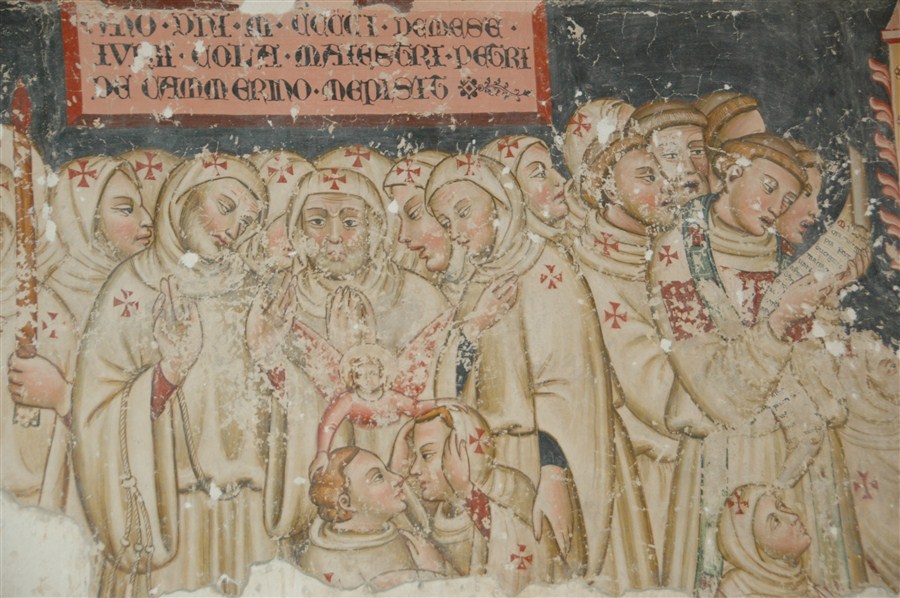 NNO · DNI · M · CCCCI · DEMESE
IUNII · COLA · MAIESTRI · PETRI
DE CAMMERINO · MEPISIT